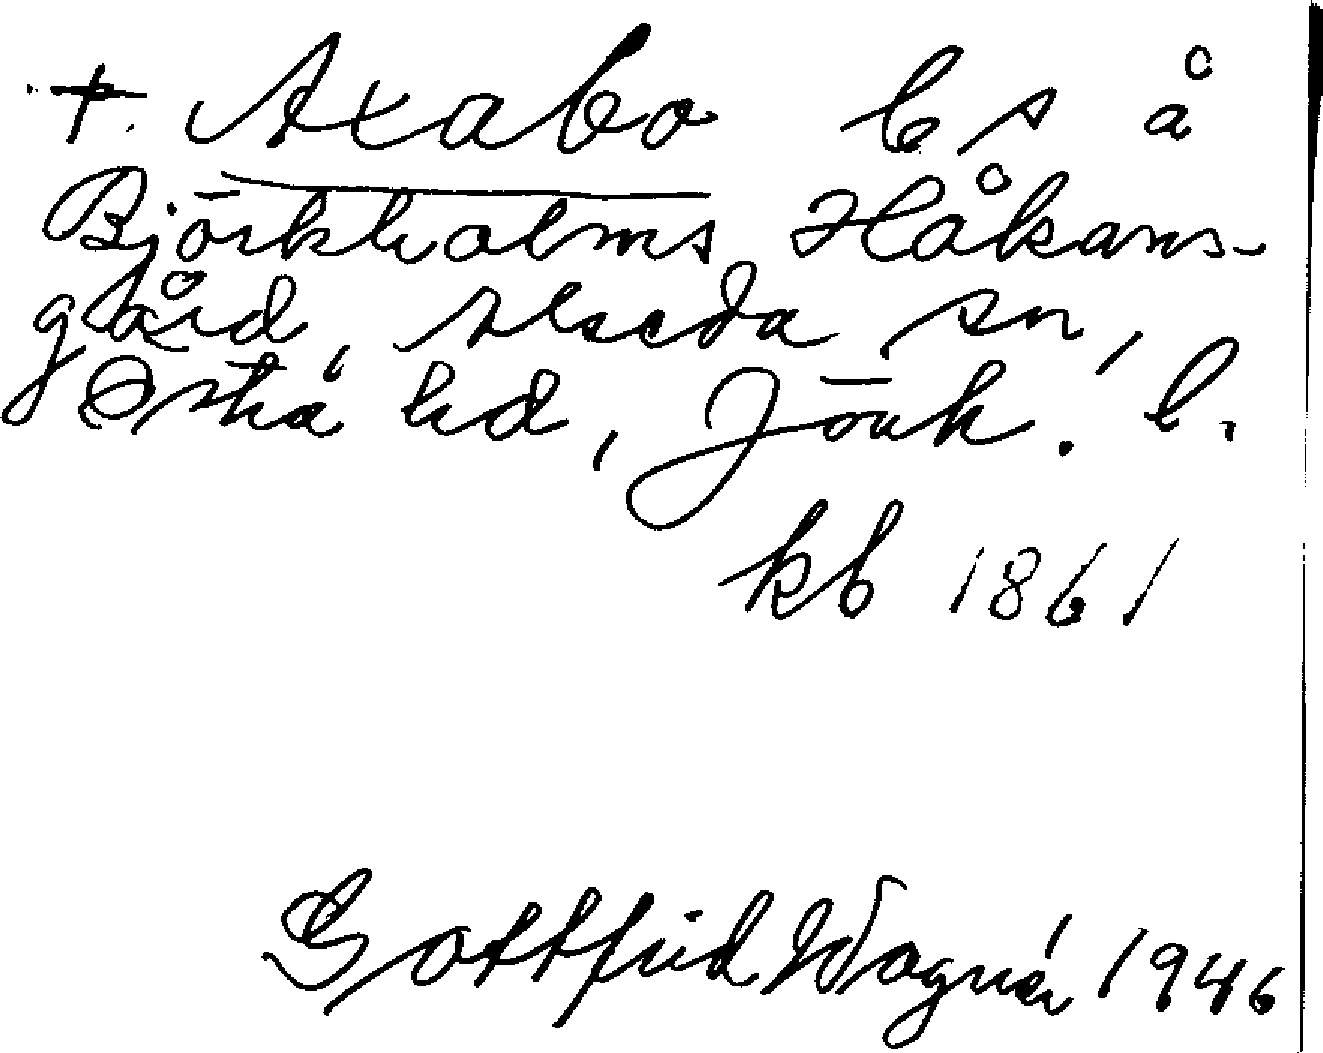 +. Axabo bs å
Björkholms Håkans-
gård, Alseda sn,
Östra hd, Jönk. l.
kb 1861
Gottfrid Wagnér 1946